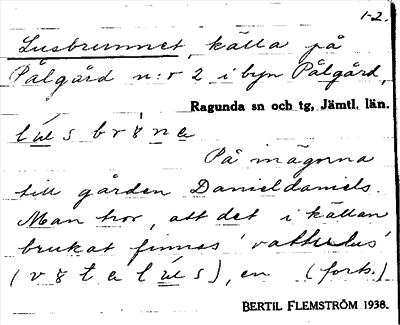 1-2.
Lusbrunnet, källa på
Pålgård n:r 2 i byn Pålgård,
Ragunda sn och tg, Jämtl. län.
På inägorna
till gården Danieldaniels.
Man tror, att det i källan
brukat finnas 'vattulus'
en (forts.)
BERTIL FLEMSTRÖM 1938.